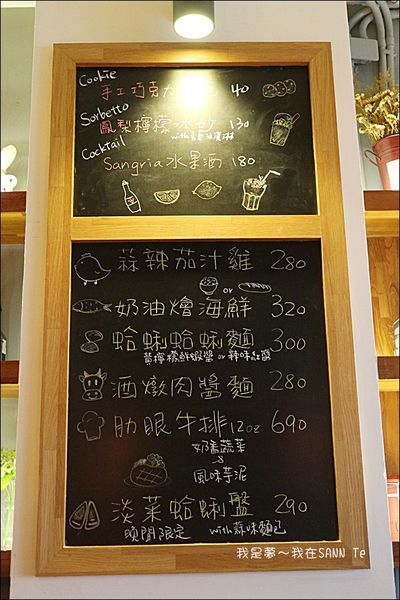 Cookie
手工巧克力 40
Sorbetto
鳳梨檸檬冰沙 130
Cocktail
Sangria水果酒 180
蒜辣茄汁雞 280
or
奶油燴海鮮 320
蛤蜊蛤蜊麵 300
酒燉肉醬麵 280
肋眼牛排12oz 690
奶香蔬菜
&
風味芋泥
淡菜蛤蜊盤 290
晚間限定 with蒜味麵包
我是夢～我在SANN Te